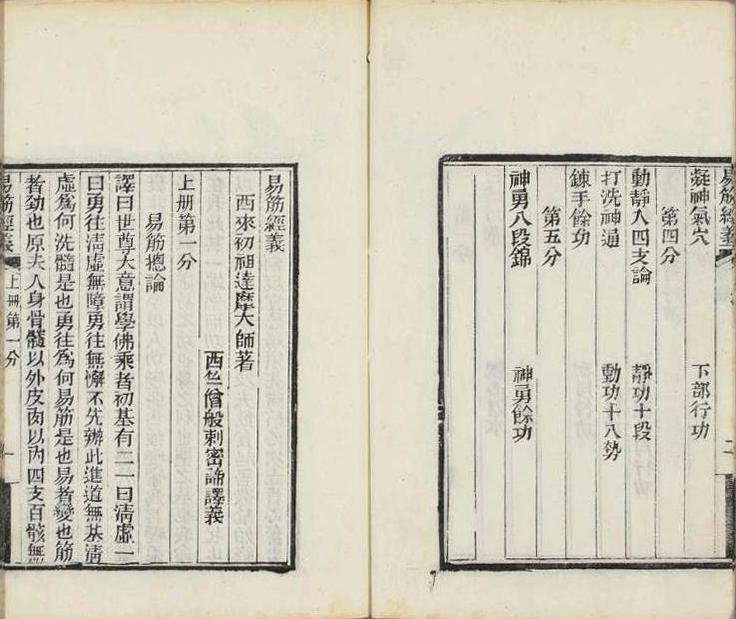 易筋經義
凝神氣穴 下部行功
第四分
動靜入四支論 靜功十段
打洗神通 動功十八勢
鍊手餘功
第五分
神勇八段錦 神勇餘功
易筋經義
西來初祖達摩大師著
西竺僧般剌密諦譯義
上册第一分
易筋總論
譯曰世尊大意謂學佛乘者初基有二一曰淸虛一
曰勇往淸虛無障勇往無懈不先辦此進道無基淸
虛爲何洗髓是也勇往爲何易筋是也易者變也筋
者勁也原夫人身骨髓以外皮肉以內四支百骸無
易筋經義 上册第一分 一